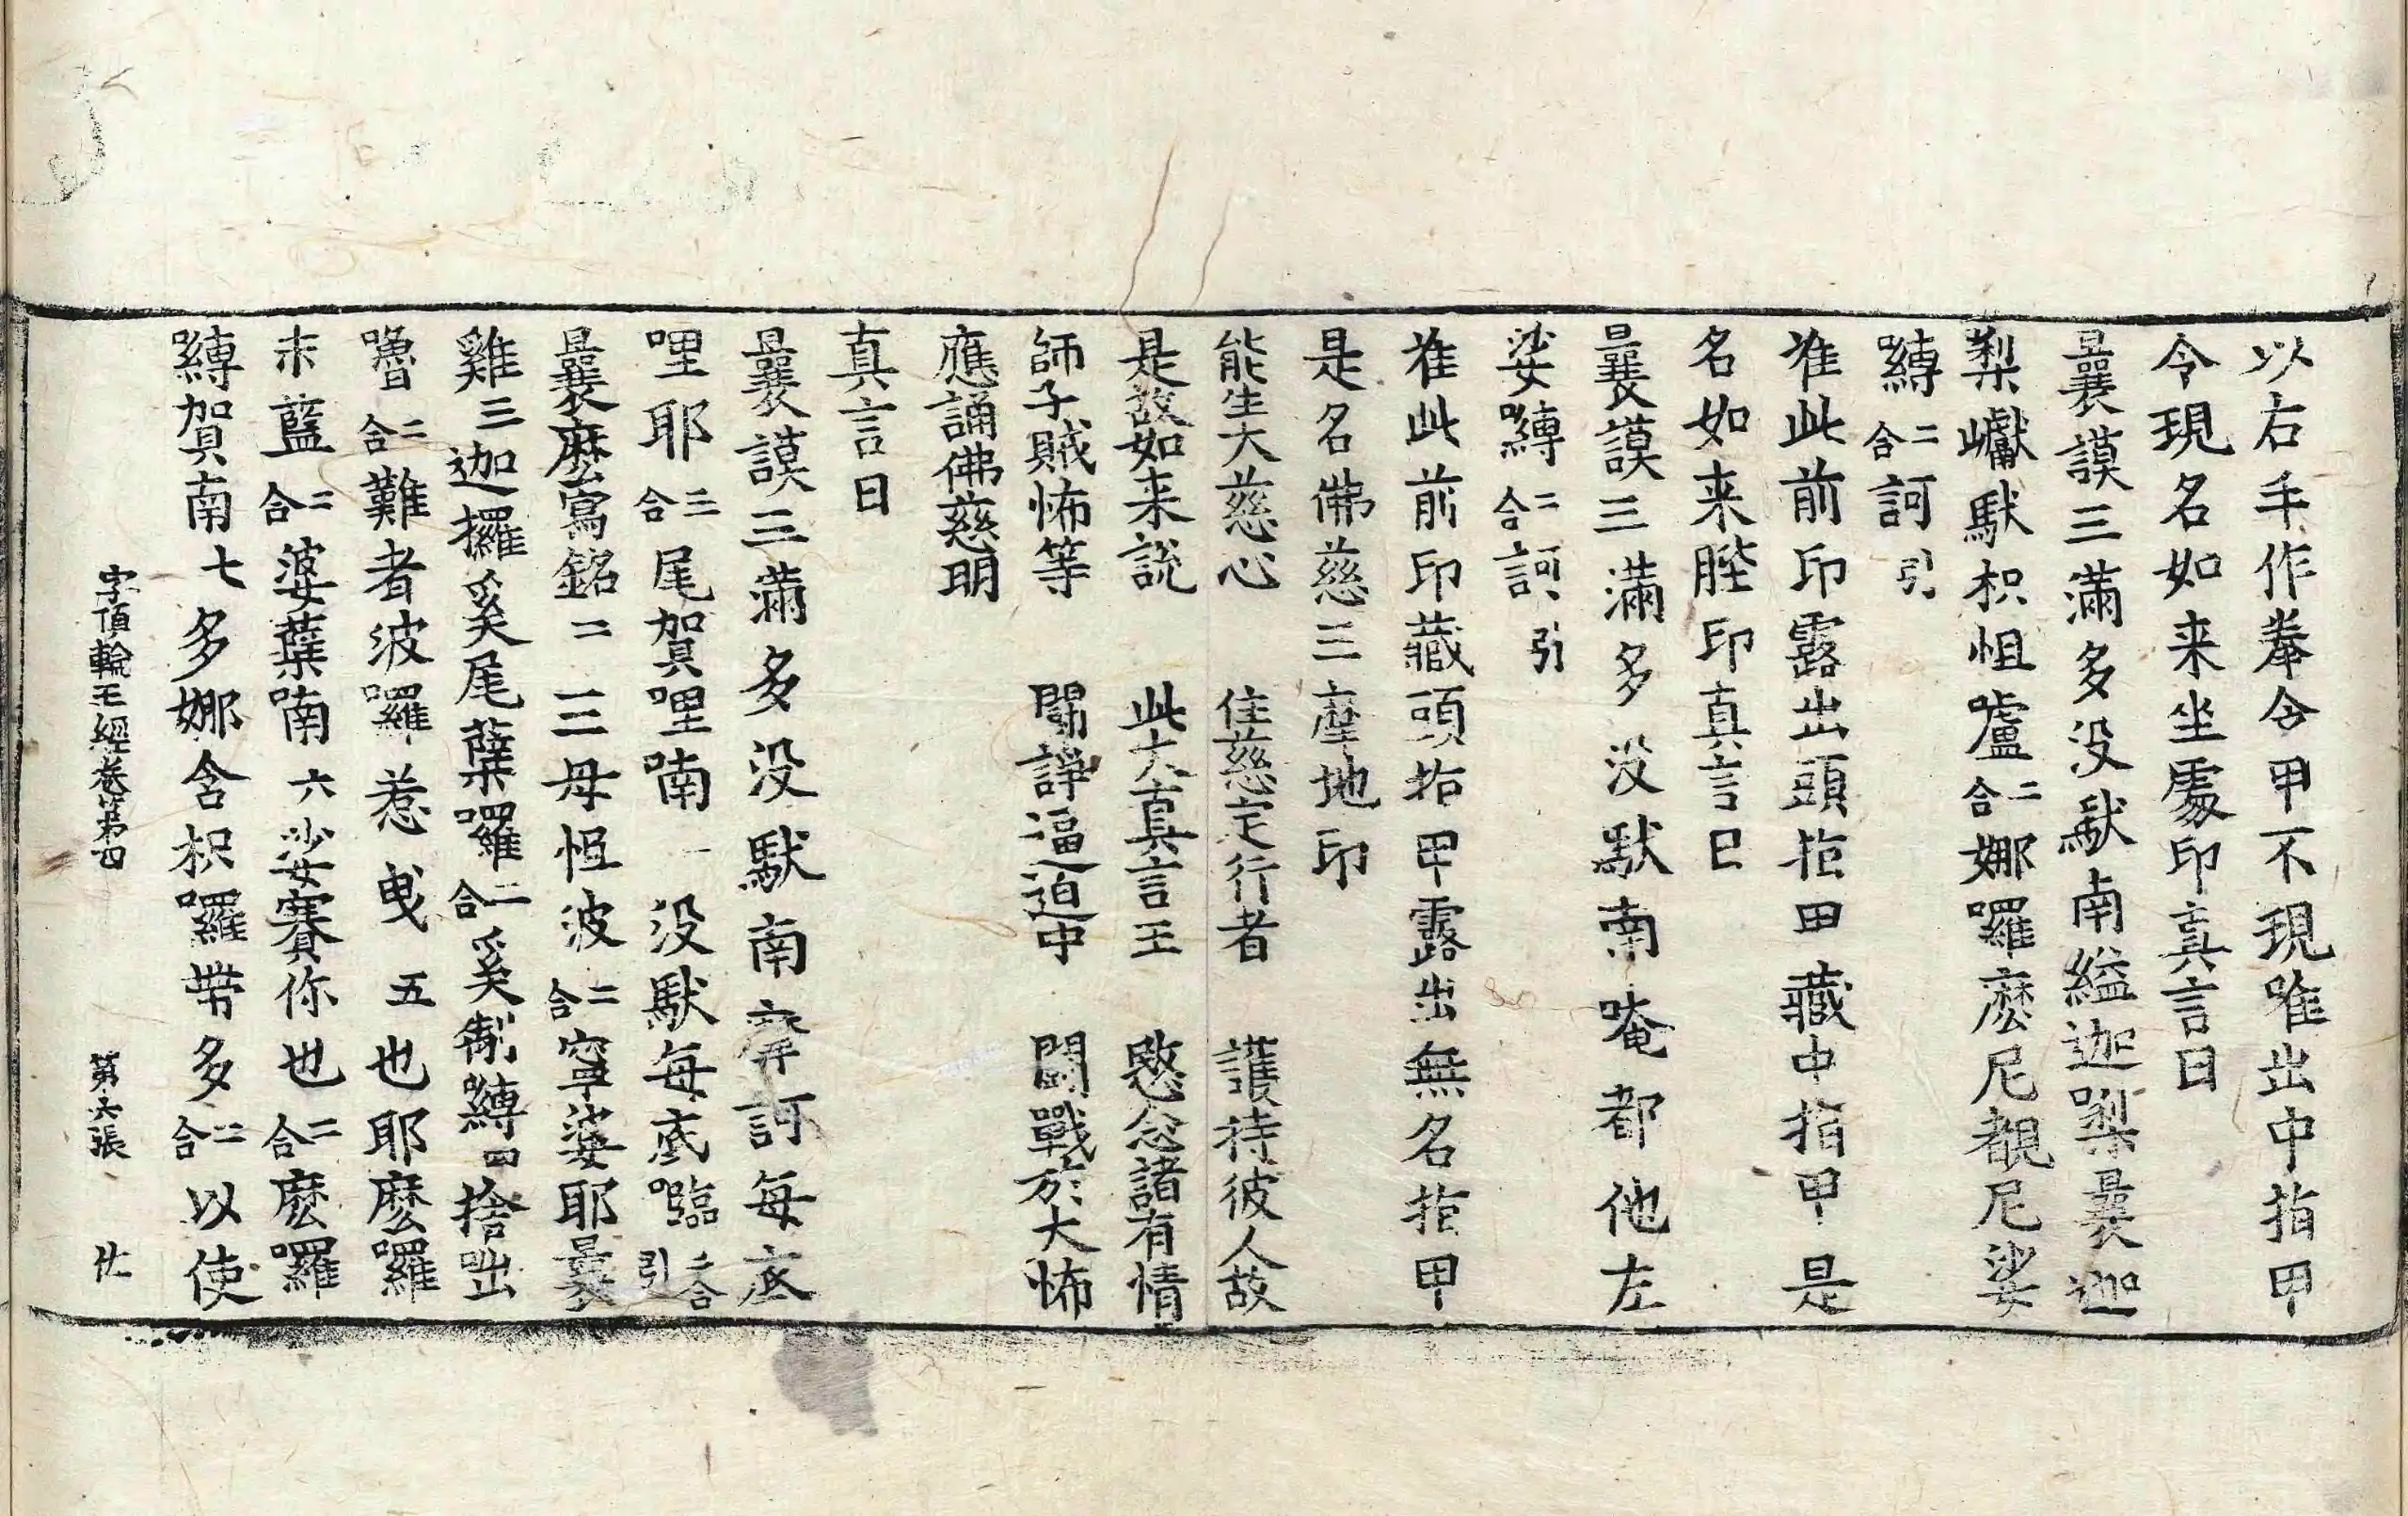 以右手作拳令甲不現唯出中指甲
令現名如来坐處印真言曰
曩謨三滿多没馱南縊迦㗚曩迦
㗚巘馱枳怚嚧二合娜囉麽尼覩尼娑
嚩二合訶引
准此前印露出頭指甲藏中指甲是
名如来䏶印真言曰
曩謨三滿多没馱南唵都他左
娑嚩二合訶引
准此前印藏頭指甲露出無名指甲
是名佛慈三摩地印
能生大慈心　住慈定行者　護持彼人故
是故如来說　此大真言王　愍念諸有情
師子賊怖等　鬪諍逼迫中　鬪戰於大怖
應誦佛慈明
真言曰
曩謨三滿多没馱南摩訶每底
哩耶三合尾賀哩喃一没馱每底𡅏二合引
曩麽寫銘二三母怚波二合寧娑耶曩
雞三迦攞奚尾蘖囉二合奚制嚩四捨咄
嚕二合難者波囉惹曳五也耶麽囉
末藍二合婆葉喃六娑賽你也二合麽囉
嚩賀南七多娜含枳囉帶多二合以使
字頂輪王經卷第四　第六張　仕